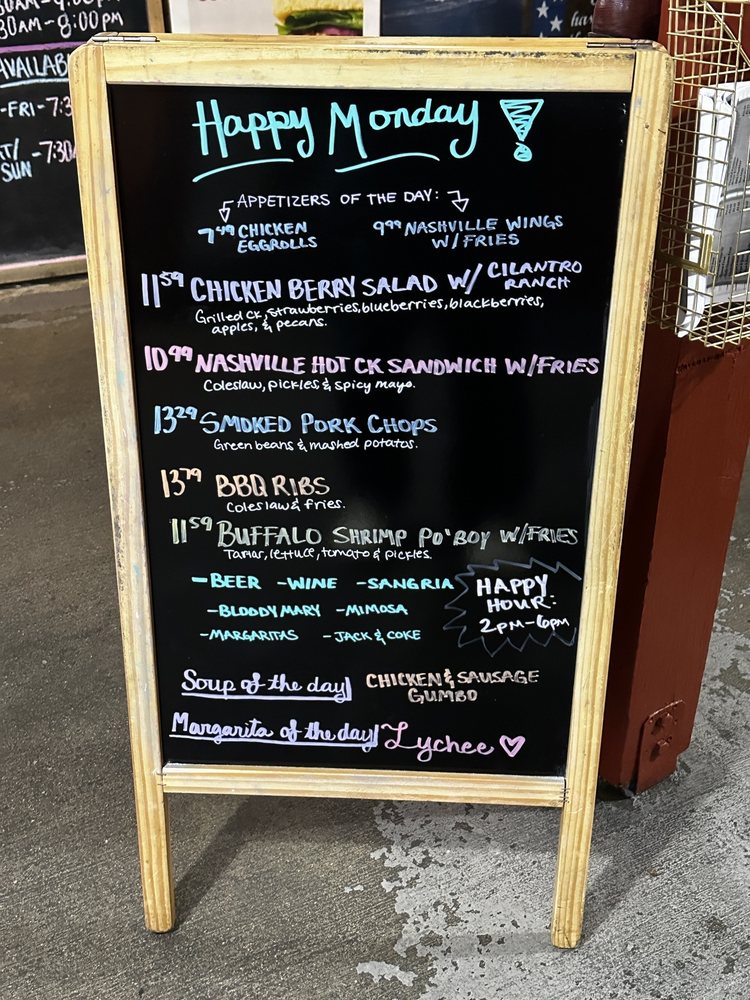 30AM-8:00PM
AVAILAB
-FRI-7:3
SUN -7:30
Happy Monday!
APPETIZERS OF THE DAY:
7.49 CHICKEN EGGROLLS
9.99 NASHVILLE WINGS W/FRIES
11.59 CHICKEN BERRY SALAD W/ CILANTRO RANCH
Grilled ck, strawberries, blueberries, blackberries,
apples, & pecans.
10.99 NASHVILLE HOT CK SANDWICH W/FRIES
Coleslaw, pickles & spicy mayo.
13.29 SMOKED PORK CHOPS
Green beans & mashed potatos.
13.79 BBQ RIBS
Coleslaw & fries.
11.59 BUFFALO SHRIMP PO'BOY W/FRIES
Tartar, lettuce, tomato & pickles.
-BEER -WINE -SANGRIA
-BLOODY MARY -MIMOSA
-MARGARITAS -JACK & COKE
HAPPY
HOUR:
2PM-6PM
Soup of the day| CHICKEN & SAUSAGE
GUMBO
Margarita of the day| Lychee ♡